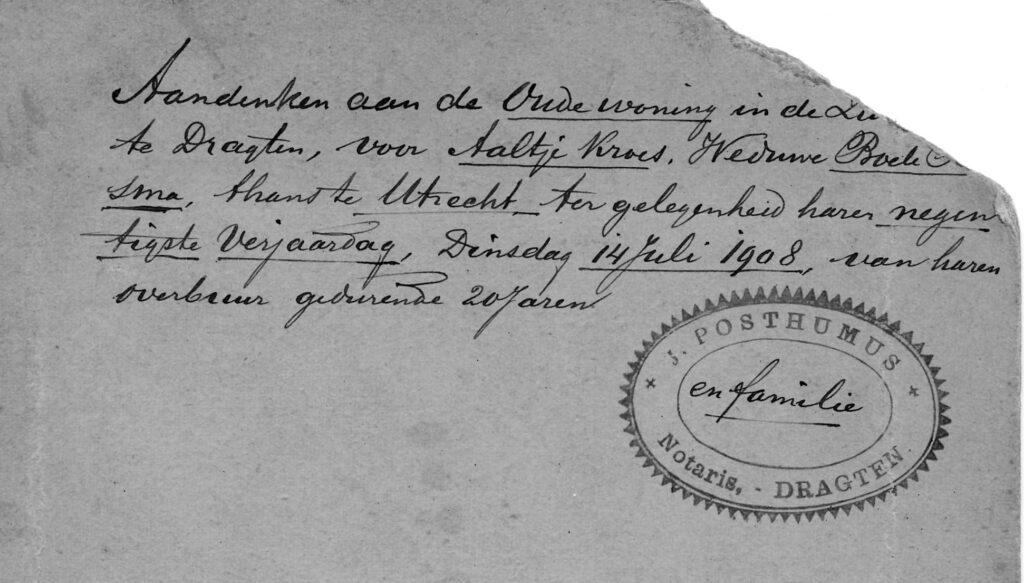 Aandenken aan de Oude woning in de Zu
te Dragten, voor Aaltje Kroes, Weduwe Boele
sma, thans te Utrecht ter gelegenheid harer negen
tigste Verjaardag, Dinsdag 14 Juli 1908, van haren
overbuur gedurende 20 Jaren
J. POSTHUMUS
en familie
Notaris, - DRAGTEN.